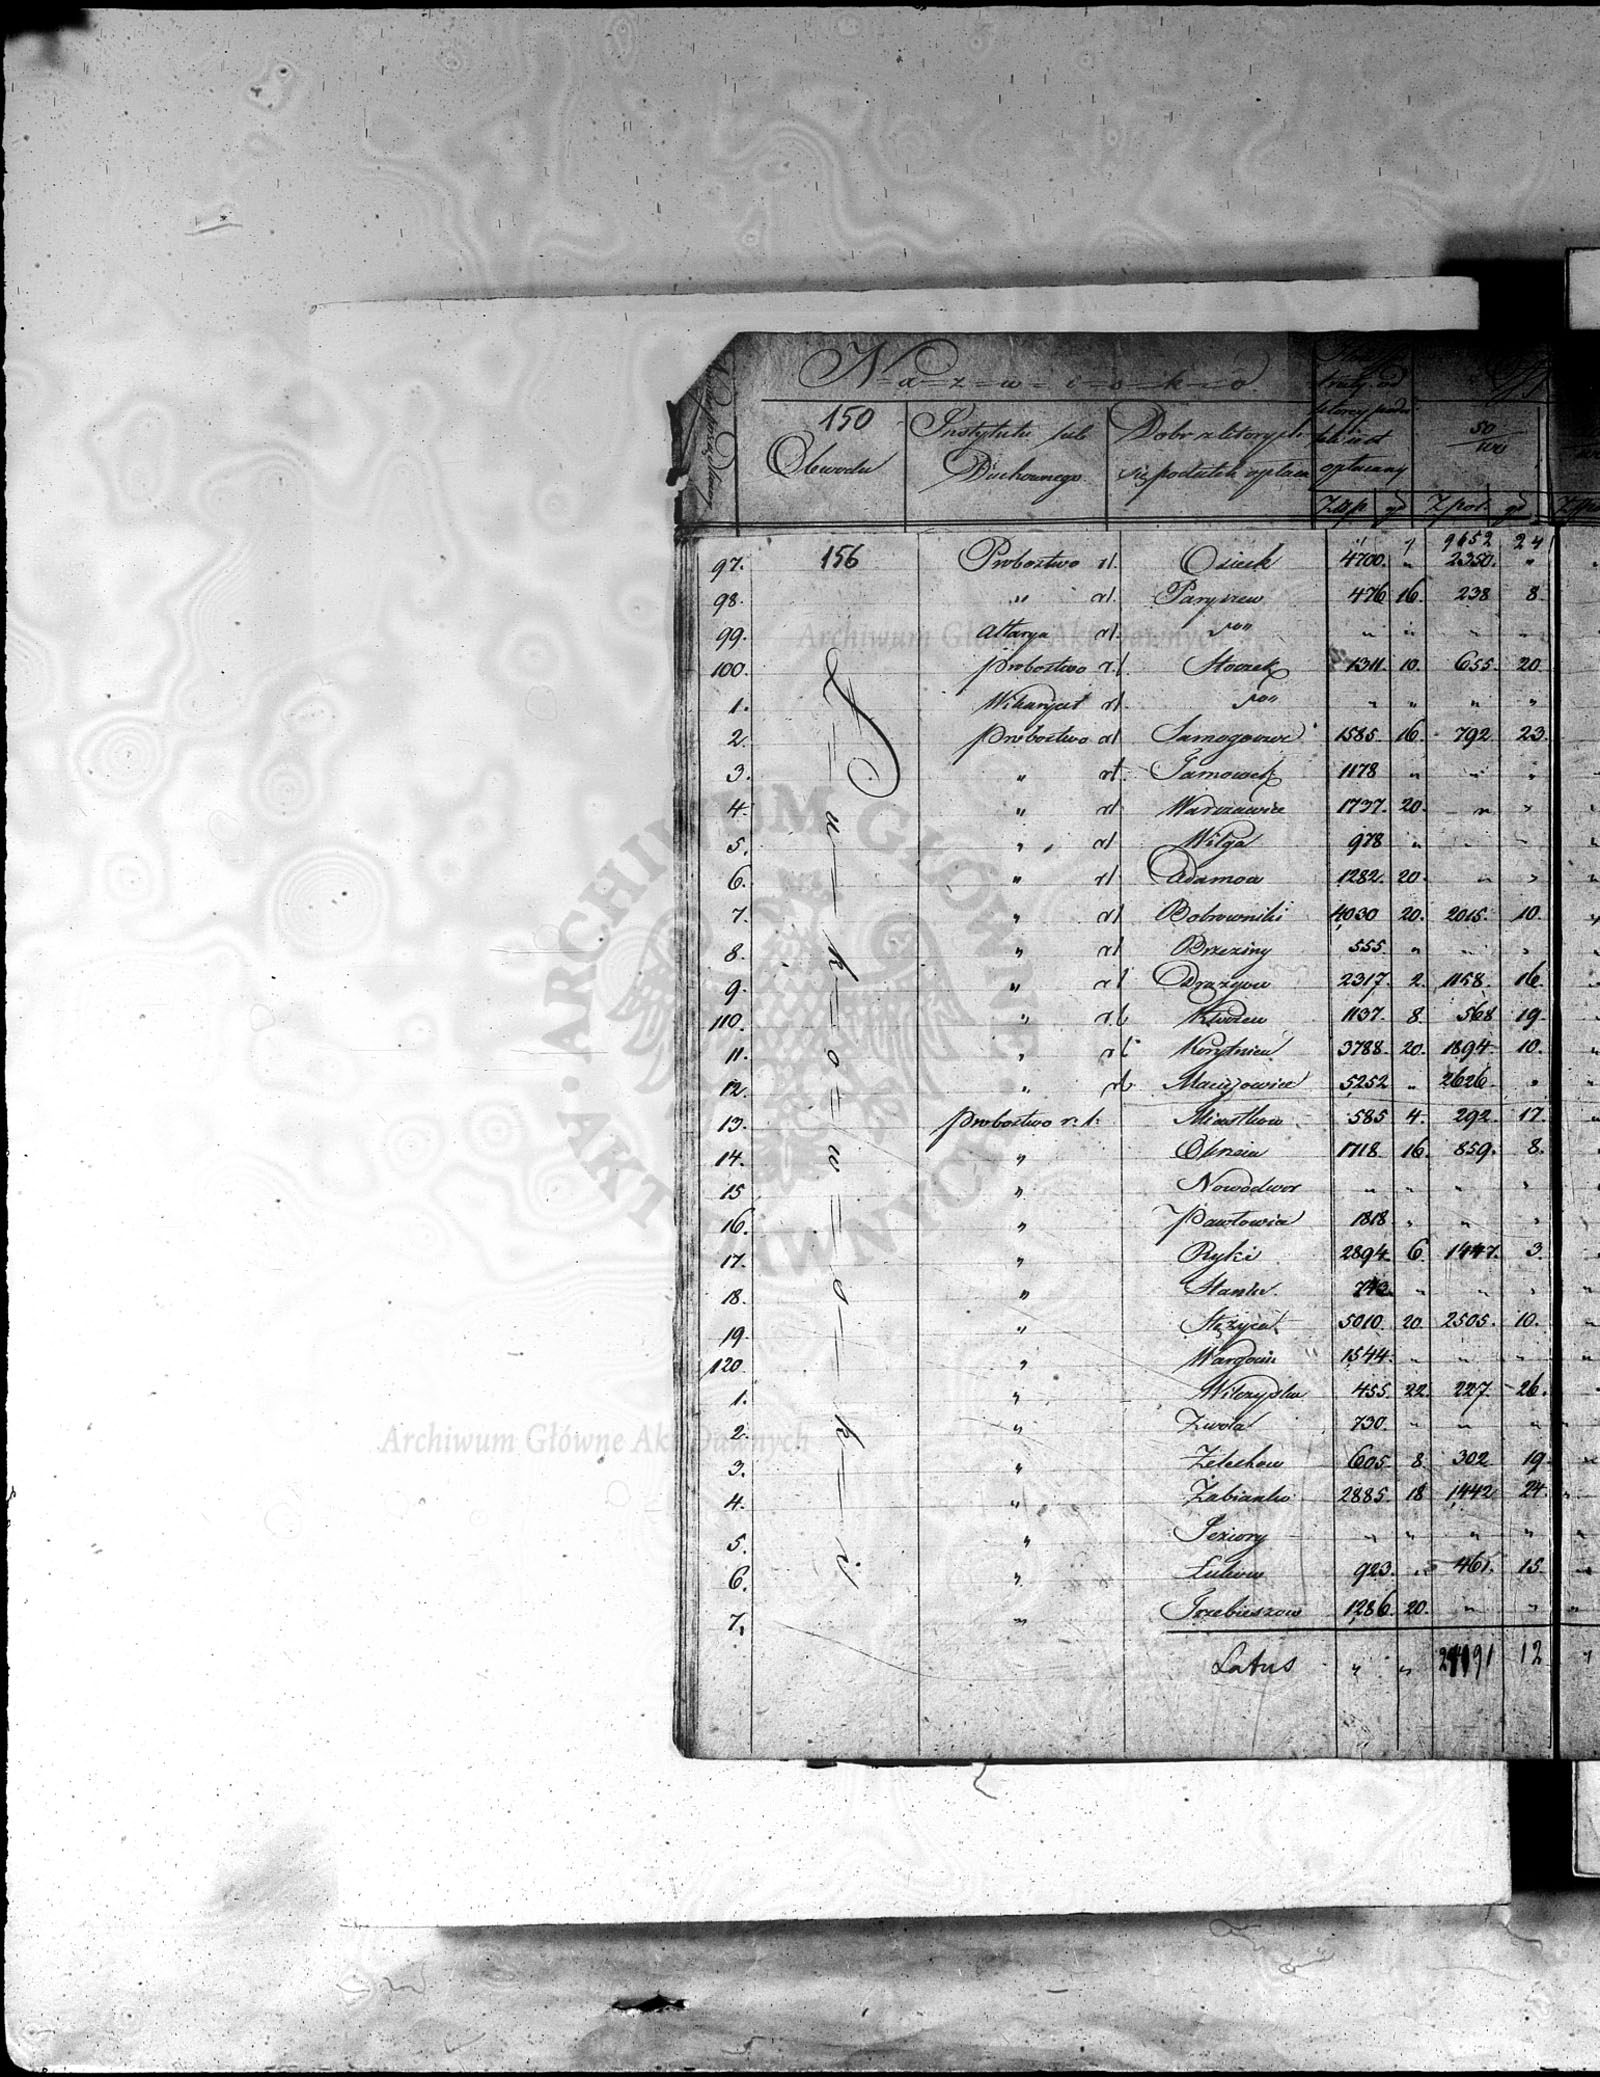 N=a=z=w=i=s=k=o
150
Obwodu
Instytutu lub
Duchownego
Dobr z ktorych
się podatek opłaca
opłacany
50
Złp. gr Zpol. gr
9652 24
97. 156 Probostwo rl. Osieck 4700. " 2350. "
98. " rl. Paryszew 476 16. 238 8.
99. Altarya rl. " " " "
100. probostwo r.l. Stoczek 1311 10. 655 20.
1. Wikaryat rl. " " " "
2. probostwo rl 1585. 16. 792 23.
3. " rl. Tarnowek 1178 " " "
4. " rl Warszawice 1737. 20. " "
5. " rl Wilga 978 " " "
6. " rl Adamow 1282. 20. " "
7. " rl Bobrowniki 4030 20. 2015. 10.
8. " rl Brzeziny 555. " " "
9. " rl Drążgow 2317. 2. 1158. 16.
110. " r.l Kłoczew 1137. 8. 568 19.
11. " rl Korytnica 3788. 20. 1894. 10.
12. " rl Maciejowice 5252 " 2626 "
13. probostwo r. l. Miastkow 585 4. 292. 17.
14. " Okrzeia 1718 16. 859. 8.
15 " Nowodwor " " " "
16. " Pawłowice 1818. " " "
17. " Ryki 2894. 6. 1447. 3.
18. " Stanin 743. " " "
19. " Stężyca 5010. 20. 2505. 10.
120. " Wargocin 1544. " " "
1. " Wilczyska 455. 22. 227. 26.
2. " Zwola 730. " " "
3. " Zelechow 605. 8. 302 19.
4. " Żabianka 2885. 18 1442 24.
5. " Jeziory " " " "
6. " Łukow 923. " 461. 15.
7. " Trzebieszow 1286. 20. " "
Latus " " 12
Ł=u=k=o=w=s=k=i
Archiwum Główne Akt Dawnych
ARCHIWUM GŁÓWNE AKT DAWNYCH
Archiwum Główne Akt Dawnych